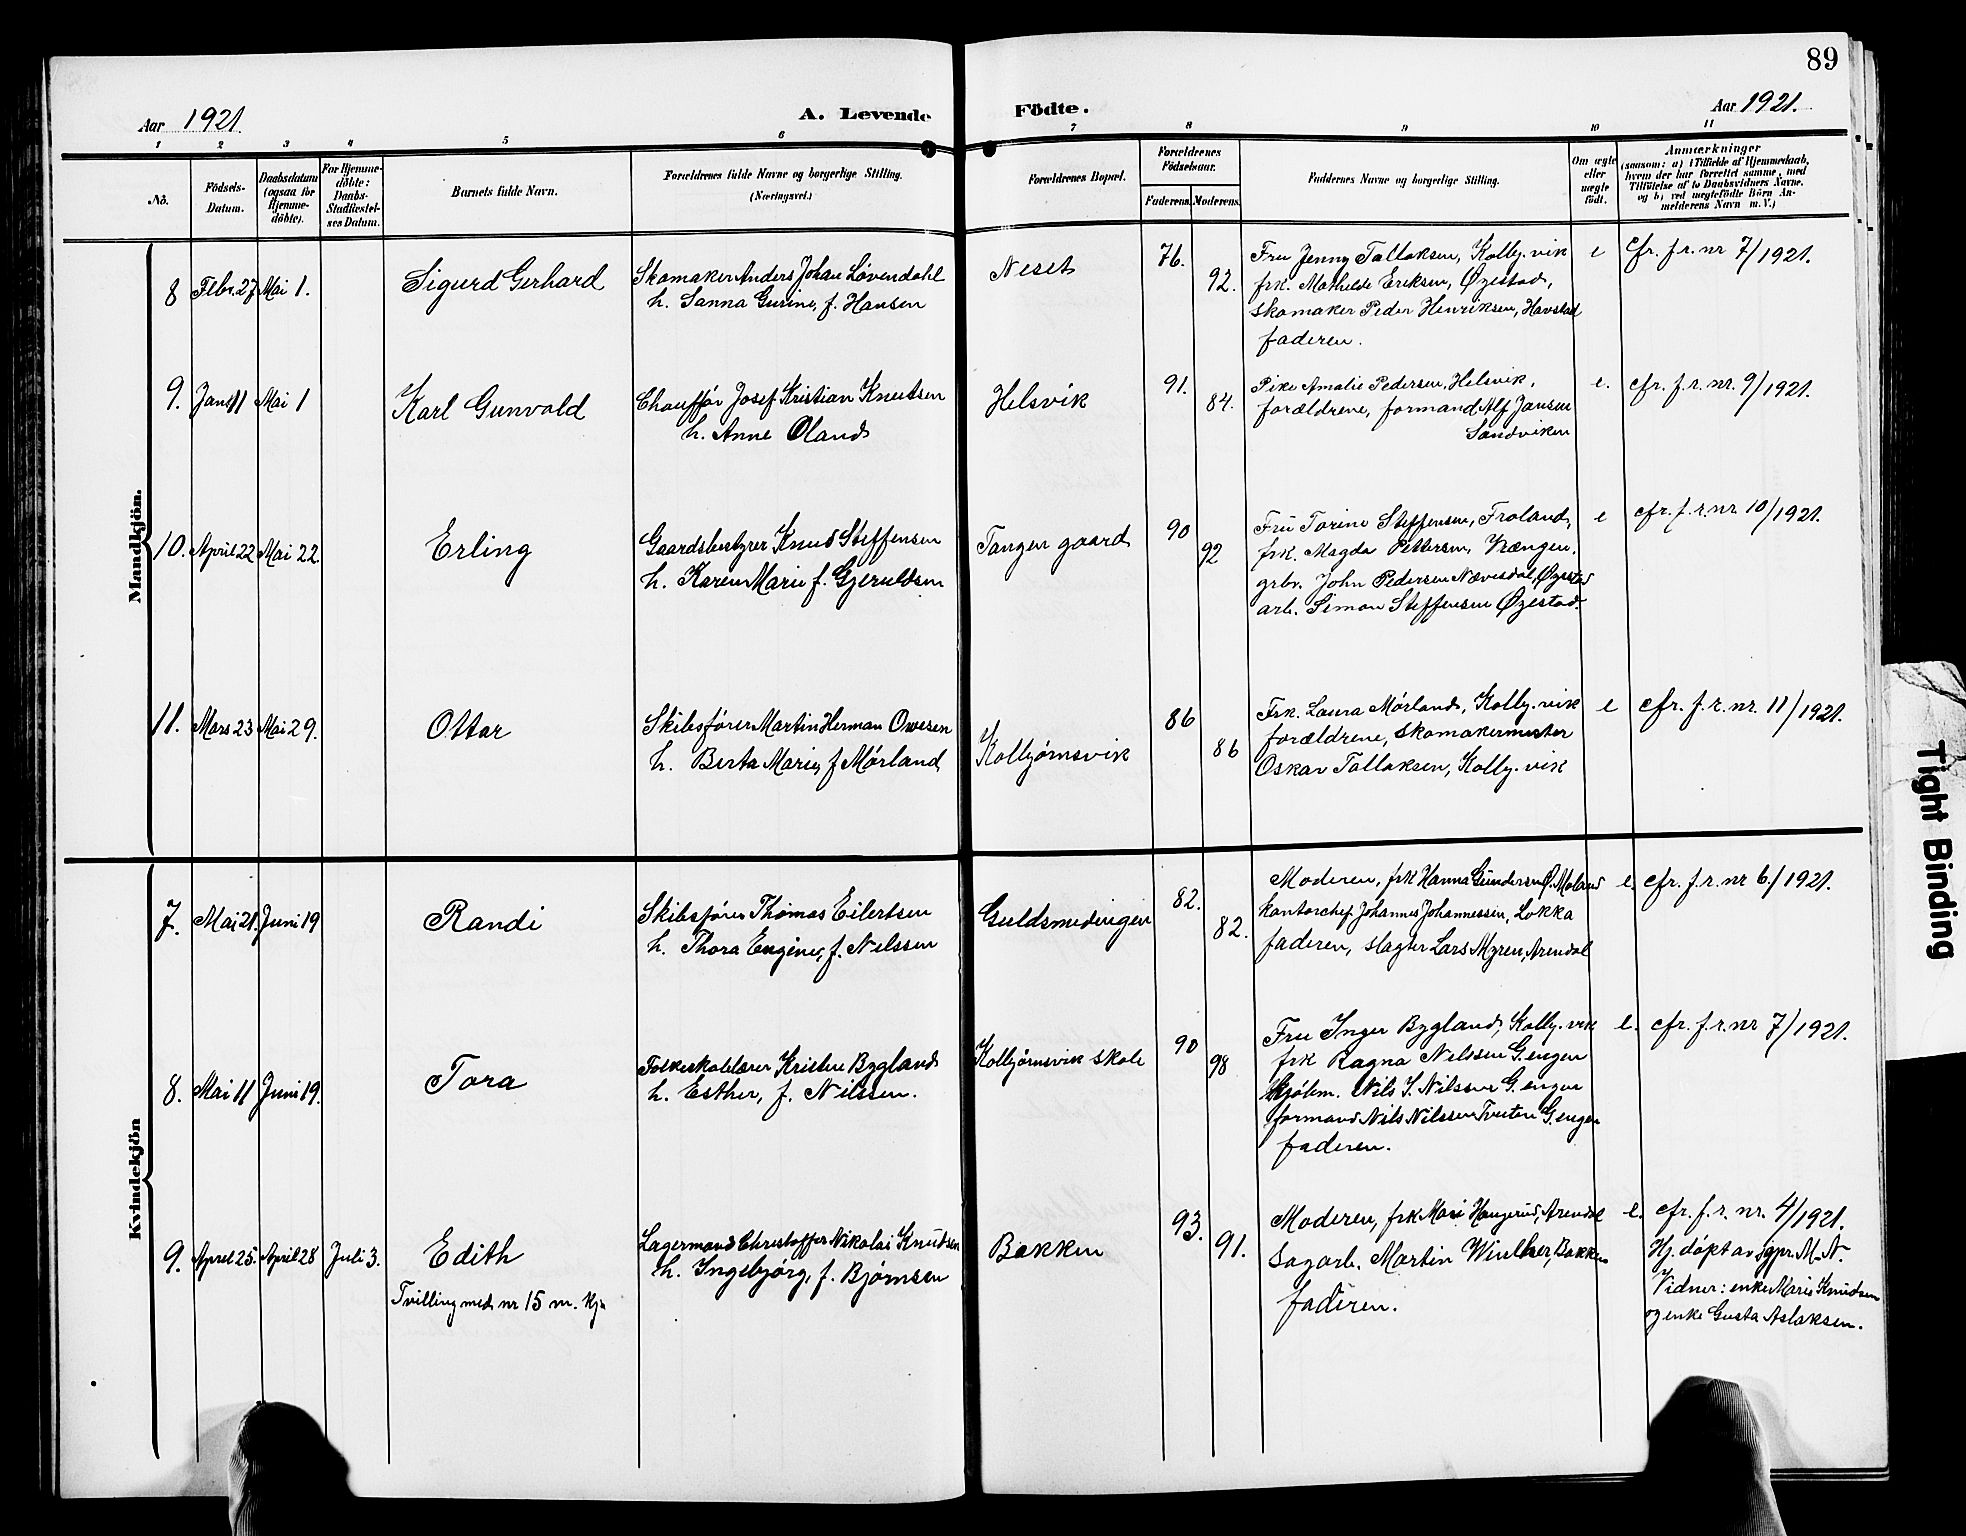 89
Aar 1921.
A. Levende Födte.
Aar 1921.
1 2 3 4 5 6 7 8 9 10 11
No.
Födsels-
Datum.
Daabsdatum
(ogsaa for
Hjemme-
döbte).
For Hjemme-
döbte:
Daabs-
Stadfæstel-
ses Datum.
Barnets fulde Navn.
Forældrenes fulde Navne og borgerlige Stilling.
(Næringsvei.)
Forældrenes Bopæl.
Forældrenes
Födselsaar.
Faderens. Moderens.
Faddernes Navne og borgerlige Stilling.
Om ægte
eller
uægte
födt.
Anmærkninger
(saasom: a) i Tilfælde af Hjemmedaab,
hvem der har forrettet samme, med
Tilföielse af to Daabsvidners Navne.
og b) ved uægtefödte Börn An-
melderens Navn m. V.)
Mandkjön.
8 Febr. 27 Mai 1. Sigurd Gerhard
Skomaker Anders Johan Løvendahl
h. Sanna Gurine, f. Hansen
Neset 76. 92.
Fru Jenny Tallaksen, Kolbj.vik
frk. Mathilde Eriksen, Øiestad,
skomaker Peder Henriksen, Havstad
faderen.
e cfr. f.r. nr 7/1921.
9. Jan. 11 Mai 1 Karl Gunvald
Chauffør Josef Kristian Knutsen
h. Anne Øland
Helsvik 91. 84.
Pike Amalie Pedersen, Helsvik,
forældrene, formand Alf Jansen
Sandviken
e. cfr. f.r. nr. 9/1921.
10. April 22 Mai 22. Erling
Gaardsbestyrer Knud Steffensen
h. Karen Marie f. Gjeruldsen
Tangen gaard 90 92
Fru Torine Steffensen, Froland,
frk. Magda Pettersen, Vrængen.
grbr. John Pedersen Nævesdal, Øyestad
arb. Simon Steffensen Øiestad.
e cfr. f.r. nr 10/1921.
11. Mars 23 Mai 29. Ottar
Skibsfører Martin Herman Owesen
h. Berta Marie, f. Mørland
Kolbjørnsvik 86 86
Frk. Laura Mørland, Kolbj.vik
forældrene, skomakermester
Oskar Tallaksen, Kolbj.vik
e cfr. f.r. nr. 11/1921.
Kvindekjön
7. Mai 21. Juni 19 Randi
Skibsfører Thomas Eilertsen
h. Thora Eugine, f. Nilssen
Guldsmedengen 82. 82.
Moderen, frk Hanna Gundersen Ø. Moland
kontorchef Johannes Johannessen, Løkka
faderen, slagter Lars Myren, Arendal
e. cfr. f.r. nr 6/1921.
8. Mai 11 Juni 19. Tora
Folkeskolelærer Kristen Bygland
h. Esther, f. Nilssen.
Kolbjørnsvik skole 90 98
Fru Inger Bygland, Kolbj.vik
frk Ragna Nilssen G.engen
Nils S. Nilssen G.engen
formand Nils Nilssen Tveiten G.engen
faderen.
e. cfr. f.r. nr 7/1921.
9. April 25. April 28 Juli 3. Edith
Tvilling med nr 15 m. kjø
Lagermand Christoffer Nikolai Knutsen
h. Ingebjørg, f. Bjørnsen
Bakken 93. 91.
Moderen, frk Mari Haugerud, Arendal
sagarb. Martin Winther, Bakken
faderen.
e. cfr. f.r. nr. 4/1921.
Hj. døpt av sgpr M. N.
Vidner: enke Marie Knudsen
og enke Gusta Aslaksen.
Tight Binding